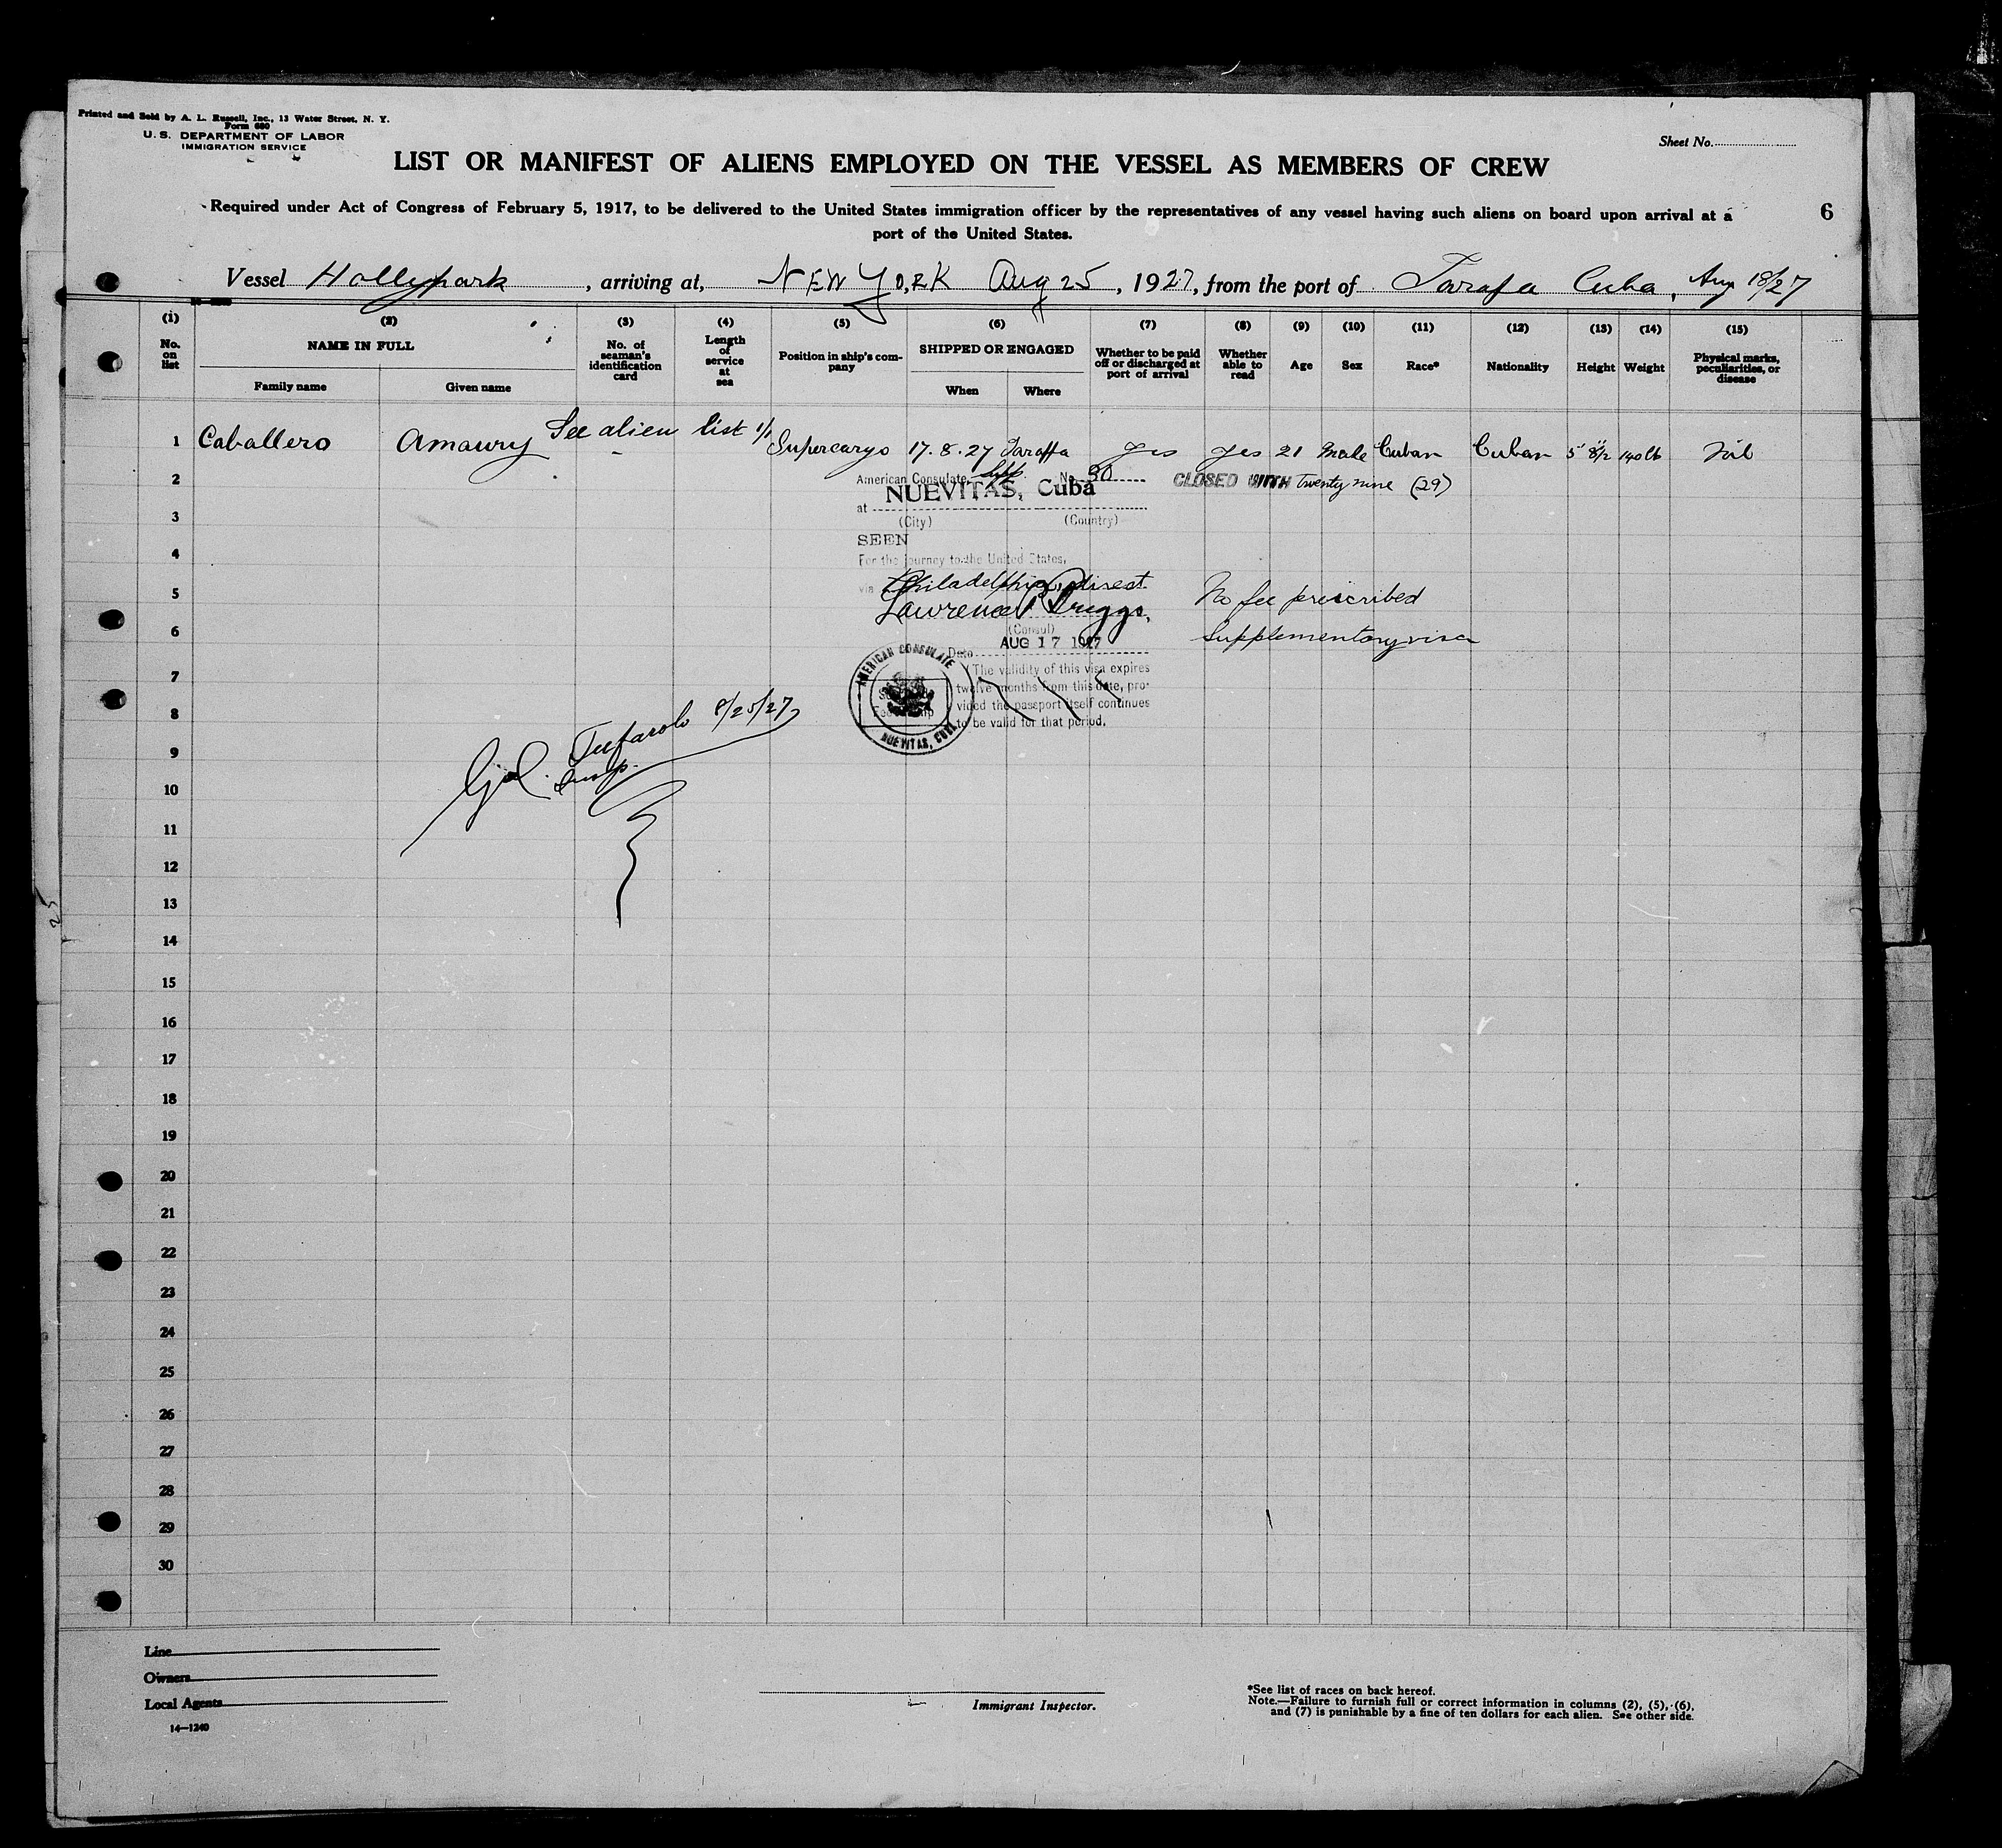 Printed and Sold by A. L. Russell, Inc., 13 Water Street, N. Y.
Form 680
U. S. DEPARTMENT OF LABOR
IMMIGRATION SERVICE
Sheet No.
LIST OR MANIFEST OF ALIENS EMPLOYED ON THE VESSEL AS MEMBERS OF CREW
Required under Act of Congress of February 5, 1917, to be delivered to the United States immigration officer by the representatives of any vessel having such aliens on board upon arrival at a
port of the United States.
6
Vessel Hollypark, arriving at, NEW YORK Aug 25, 1927, from the port of Tarafa Cuba, Aug 18/27
(1) (2) (3) (4) (5) (6) (7) (8) (9) (10) (11) (12) (13) (14) (15)
No. on list
NAME IN FULL
Family name
Given name
No. of seaman's identification card
Length of service at sea
Position in ship's company
SHIPPED OR ENGAGED
When
Where
Whether to be paid off or discharged at port of arrival
Whether able to read
Age
Sex
Race*
Nationality
Height
Weight
Physical marks, peculiarities, or disease
1 Caballero Amaury See alien list 1/1 Supercargo 17.8.27 Taraffa yes yes 21 Male Cuban Cuban 5' 8½" 140 lb Nil
2
American Consulate, No. 30
CLOSED WITH Twenty nine (29)
NUEVITAS, Cuba
3
at
(City) (Country)
SEEN
4
For the journey to the United States,
5
via Philadelphia, direct
No fee prescribed
Lawrence P. Briggs,
6
(Consul)
Supplementary visa
Date AUG 17 1927
7
The validity of this visa expires
twelve months from this date, pro-
vided the passport itself continues
to be valid for that period.
AMERICAN CONSULATE
NUEVITAS, CUBA
8
Tufarolo 8/25/27
Insp.
9
10
11
12
13
14
15
16
17
18
19
20
21
22
23
24
25
26
27
28
29
30
Line
Owners
Local Agents
14—1240
Immigrant Inspector.
*See list of races on back hereof.
Note.—Failure to furnish full or correct information in columns (2), (5), (6),
and (7) is punishable by a fine of ten dollars for each alien. See other side.
25